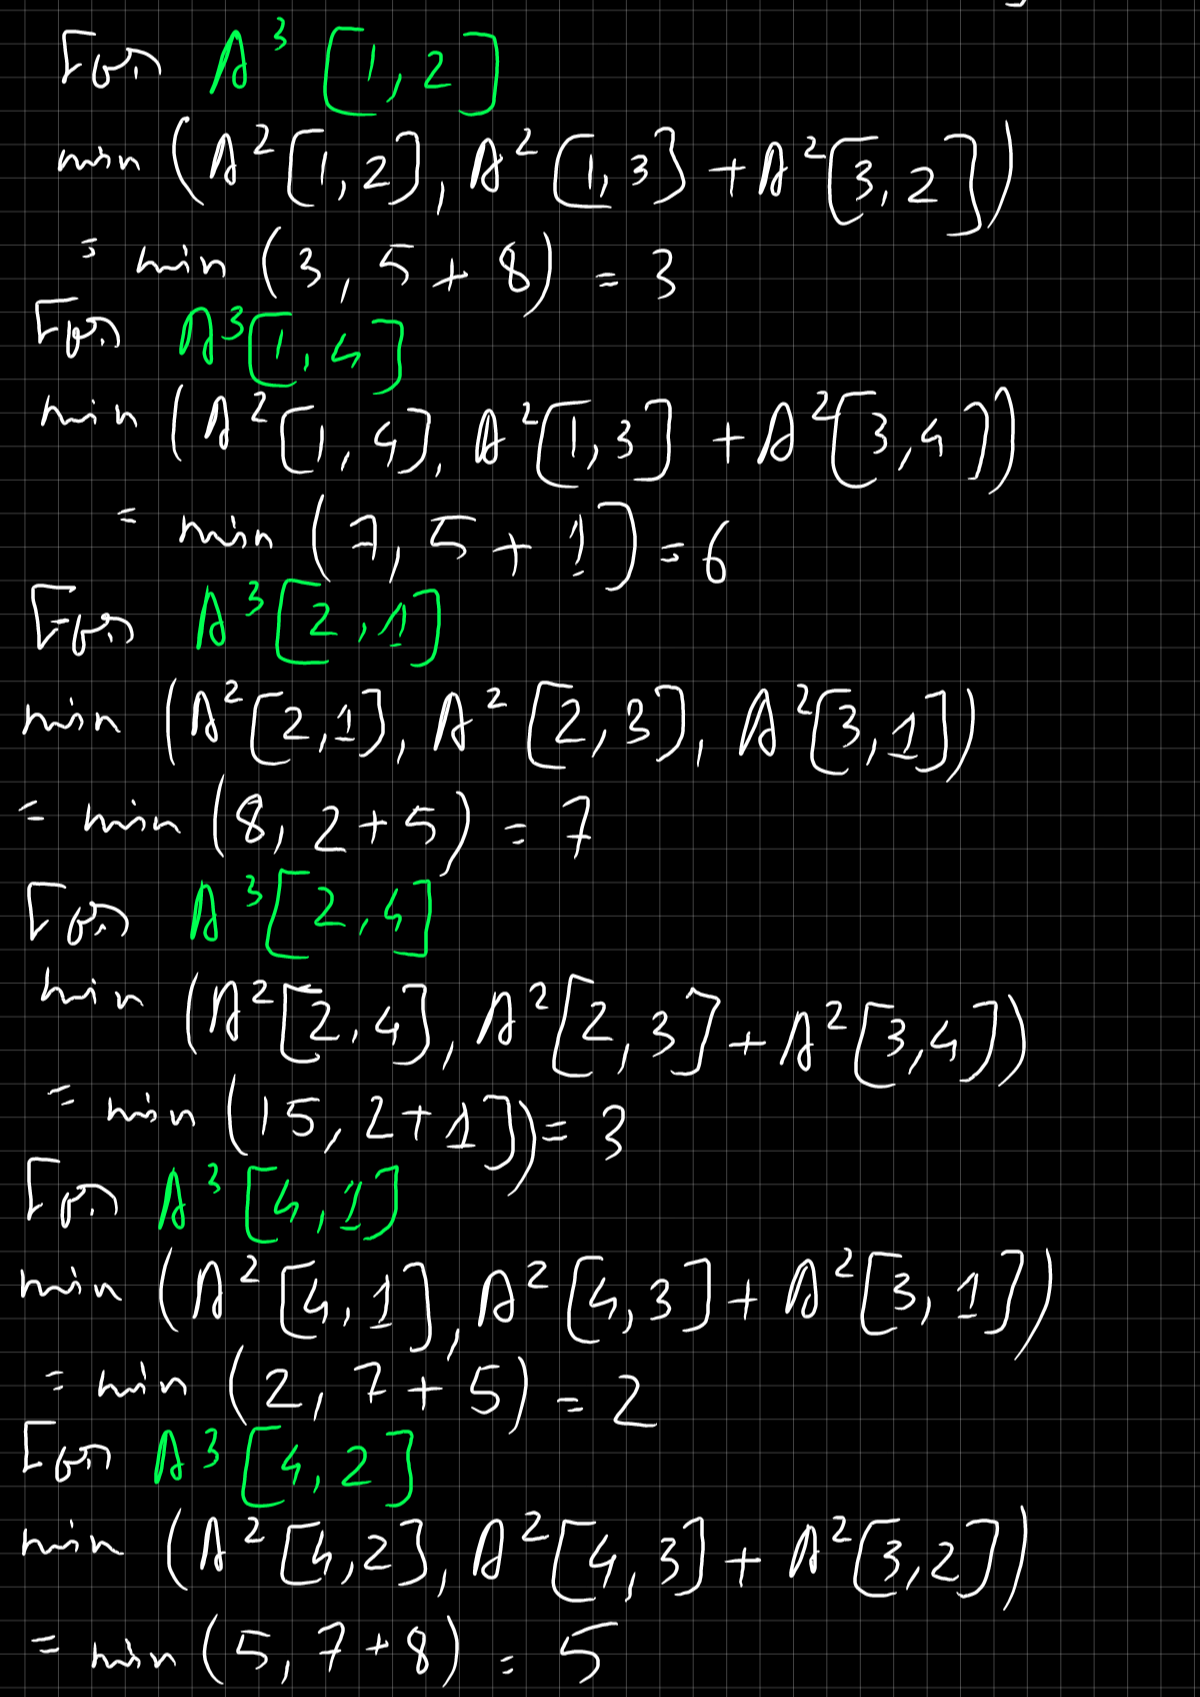 For A³ [1, 2]
min (A² [1, 2], A² [1, 3] + A² [3, 2])
= min (3, 5 + 8) = 3
For A³ [1, 4]
min (A² [1, 4], A² [1, 3] + A² [3, 4])
= min (7, 5 + 1]) = 6
For A³ [2, 1]
min (A² [2, 1], A² [2, 3], A² [3, 1])
= min (8, 2 + 5) = 7
For A³ [2, 4]
min (A² [2, 4], A² [2, 3] + A² [3, 4])
= min (15, 2 + 1]) = 3
For A³ [4, 1]
min (A² [4, 1], A² [4, 3] + A² [3, 1])
= min (2, 7 + 5) = 2
For A³ [4, 2]
min (A² [4, 2], A² [4, 3] + A² [3, 2])
= min (5, 7 + 8) = 5